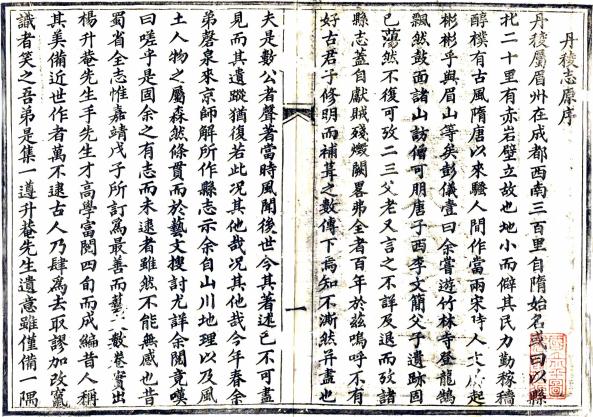 丹稜志原序
丹稜屬眉州在成都西南三百里自隋始名或曰以縣
北二十里有赤岩壁立故也地小而僻其民力勤稼穡
醇樸有古風隋唐以來騷人間作當兩宋時人文起
彬彬乎與眉山等矣彭儀壹曰余嘗遊竹林寺登龍鵠
飄然鼓面諸山訪僧可朋唐子西李文簡父子遺跡固
已蕩然不復可攷二三父老又言之不詳及退而攷諸
縣志蓋自獻賊殘燬闕畧弗全者百年於茲嗚呼不有
好古君子修明而補葺之數傳下焉知不澌然昇盡也
一
夫是數公者聲著當時風聞後世今其著述已不可盡
見而其遺蹤猶復若此况其他哉况其他哉今年春余
弟磬泉來京師解所作縣志示余自山川地理以及風
土人物之屬森然條貫而於藝文搜討尤詳余閱竟嘆
曰嗟乎是固余之有志而未逮者雖然不能無感也昔
蜀省全志惟嘉靖戊子所訂為最善而藝文數卷實出
楊升菴先生手先生才高學富閱四旬而成編昔人稱
其美備近世作者萬不逮古人乃肆為去取謬加改竄
識者笑之吾弟是集一遵升菴先生遺意雖僅備一隅